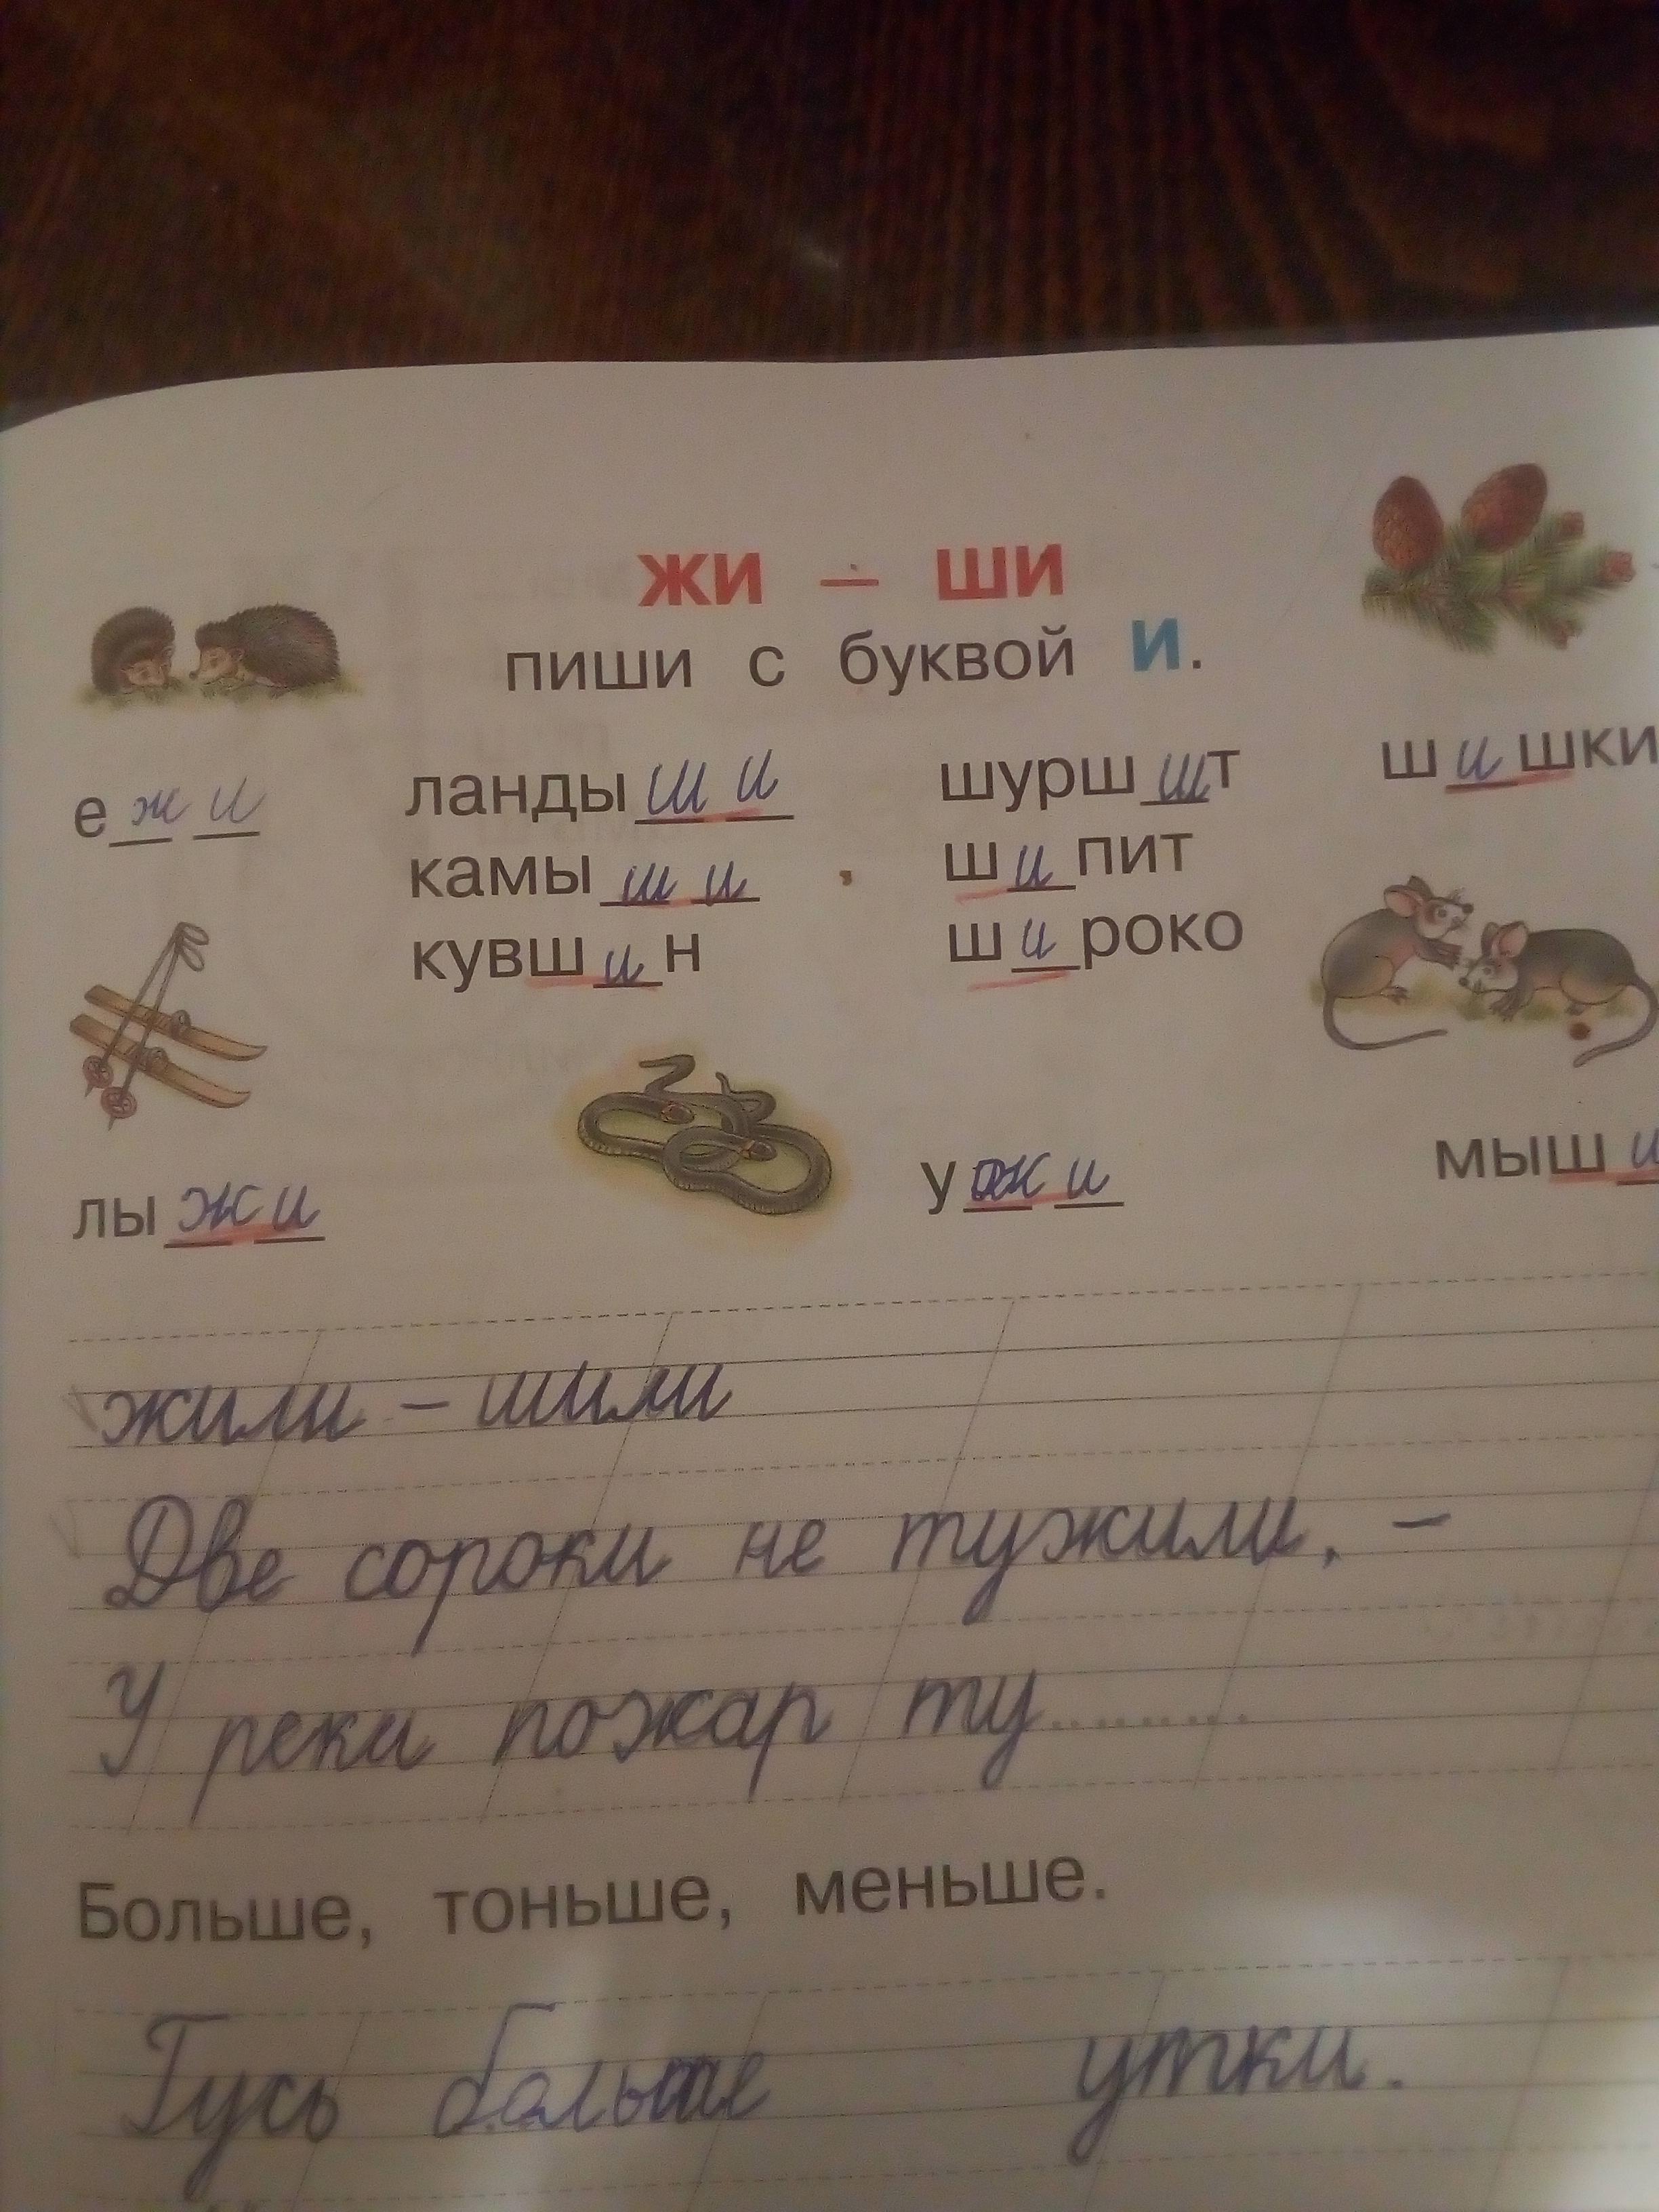 ЖИ – ШИ
пиши с буквой И.
ежи ландыши шуршшт шишки
камыши шипит
кувшин широко
лыжи ужи мыши
жили – шили
Две сороки не тужили, –
У реки пожар ту.........
Больше, тоньше, меньше.
Гусь больше утки.